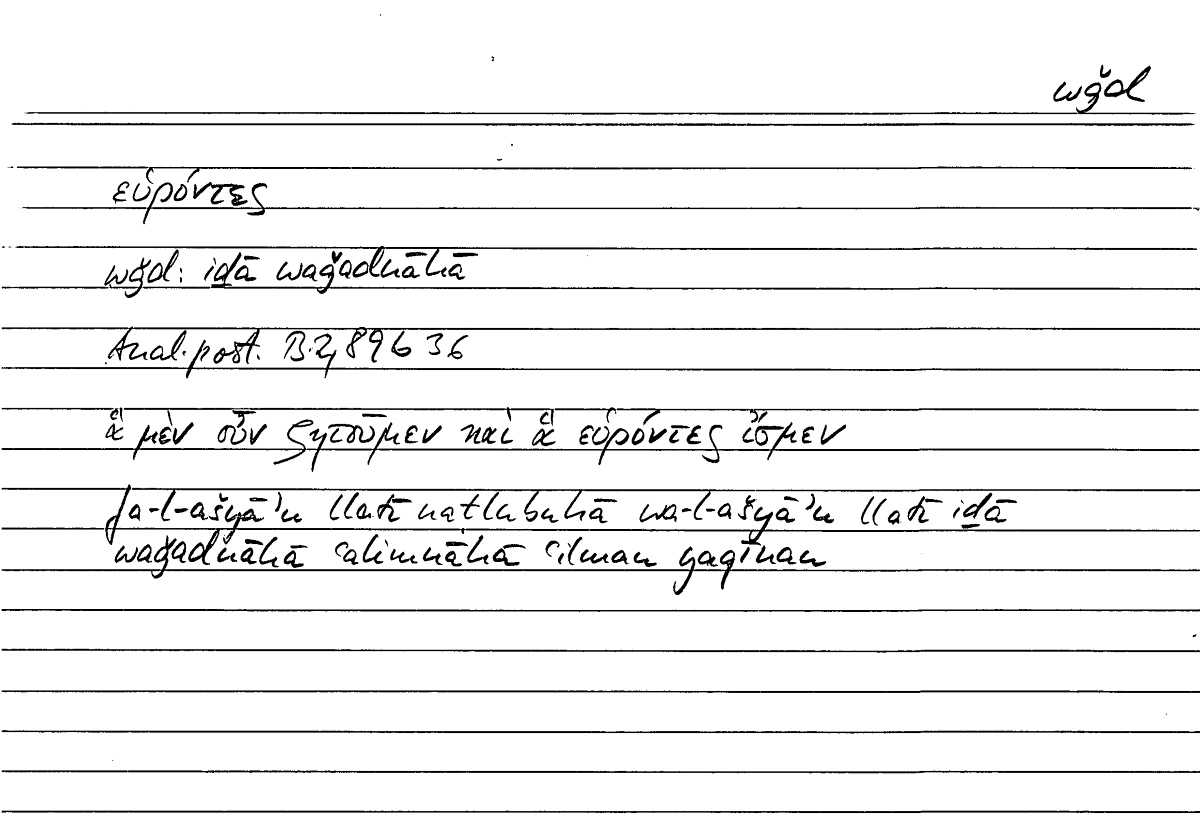 wǧd
εὑρόντες
wǧd: iḏā waǧadnāhā
Anal. post. B.2, 89b 36
ἃ μὲν οὖν ζητοῦμεν καὶ ἃ εὑρόντες ἴσμεν
fa-l-ašyāʾu llatī naṭlubuhā wa-l-ašyāʾu llatī iḏā
waǧadnāhā ʿalimnāhā ʿilman yaqīnan